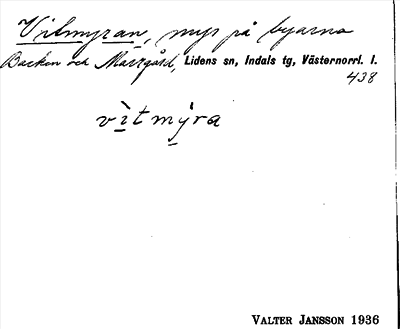 Vitmyran, myr på byarna
Backen och Märrgård, Lidens sn, Indals tg, Västernorrl. l.
438
vìtmýra
VALTER JANSSON 1936